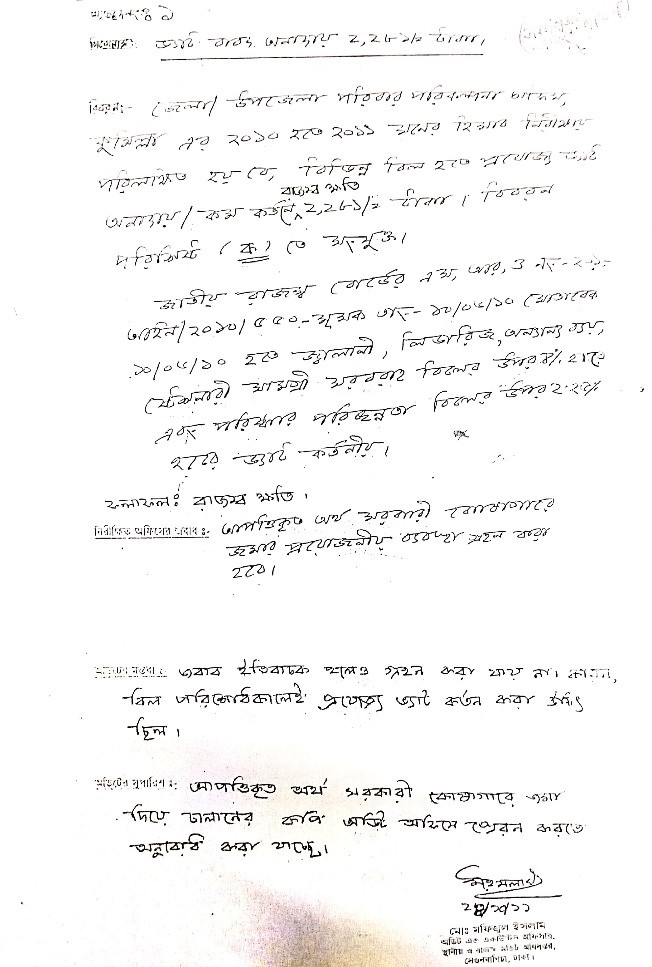 অনুচ্ছেদঃ ৯
শিরোনামঃ ভ্যাট বাবদ অনাদায় ২,২৮১/২ টাকা।
বিবরণ:- জেলা/ উপজেলা পরিবার পরিকল্পনা
কুমিল্লা এর ২০১০ হতে ২০১১ সনের হিসাব নিরীক্ষায়
পরিলক্ষিত হয় যে, বিভিন্ন বিল হতে প্রযোজ্য ভ্যাট
রাজস্ব ক্ষতি
অনাদায়/ কম কর্তনে টাকা। বিবরন
পরিশিষ্ট (ক) তে সংযুক্ত।
জাতীয় রাজস্ব বোর্ডের এস, আর, ও নং-
আইন/২০১০/৫৫০-মূসক তাং- ১০/০৬/১০ মোতাবেক
১০/০৬/১০ হতে জ্বালানী, অন্যান্য ব্যয়,
ষ্টেশনারী সামগ্রী সরবরাহ বিলের উপর ৪% হারে
এবং পরিষ্কার পরিচ্ছন্নতা বিলের উপর ২.২৫%
হারে ভ্যাট কর্তনীয়।
ফলাফলঃ রাজস্ব ক্ষতি।
নিরীক্ষিত অফিসের জবাব ঃ- আপত্তিকৃত অর্থ সরকারী কোষাগারে
জমার প্রয়োজনীয় ব্যবস্থা গ্রহন করা
হবে।
অডিটের মন্তব্য : জবাব ইতিবাচক হলেও গ্রহন করা যায় না। কারন,
বিল পরিশোধকালেই প্রযোজ্য ভ্যাট কর্তন করা উচিৎ
ছিল।
অডিটের সুপারিশ ঃ: আপত্তিকৃত অর্থ সরকারী কোষাগারে জমা
দিয়ে চালানের কপি অডিট অফিসে প্রেরন করতে
অনুরোধ করা যাচ্ছে।
২৪/১০/১১
মোঃ মফিজুল ইসলাম
অডিট এন্ড একাউন্টস অফিসার,
স্থানীয় ও রাজস্ব অডিট অধিদপ্তর,
সেগুনবাগিচা, ঢাকা।